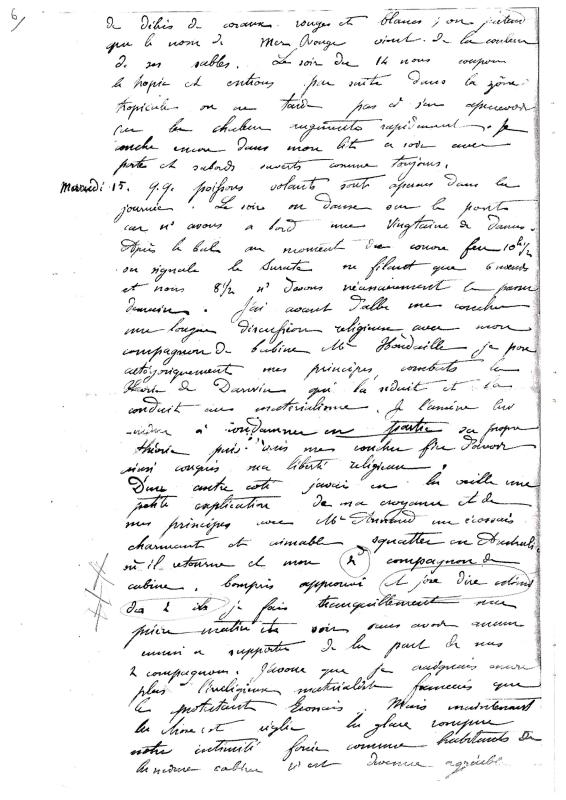 6
de débris de coraux rouges et blancs ; on prétend
que le nom de Mer Rouge vient de la couleur
de ses sables. Le soir du 14 nous coupons
le tropic et entrons par suite dans la zône
tropicale on ne tarde pas à s'en apercevoir
car la chaleur augmente rapidement. Je
couche encore dans mon lit ce soir avec
porte et sabords ouverts comme toujours.
Mercredi 15. q.q. poissons volants sont aperçus dans la
journée. Le soir on danse sur le pont
car n' avons a bord une vingtaine de Dames.
Après le bal au moment du couvre feu 10h 1/2
on signale le Surate ne filant que 6 nœuds
et nous 8 1/2 n' devons nécessairement le passer
demain. J'ai avant d'aller me coucher
une longue discussion religieuse avec mon
compagnon de cabine Mr je pose
mes principes combats la
théorie de Darwin qui l'a séduit et l'a
conduit au matérialisme. Je l'amène lui
même à condamner en partie sa propre
théorie puis vais me coucher fier d'avoir
ainsi conquis ma liberté religieuse.
D'une autre coté j'avais eu la veille une
petite explication de ma croyance et de
mes principes avec Mr un écossais
charmant et aimable squatter en Australie
où il retourne et mon 2d compagnon de
cabine. compris approuvé et j'ose dire estimé
des 2 ils je fais tranquillement ma
prière matin et soir sans avoir aucun
ennui a supporter de la part de mes
2 compagnons. J'avoue que je craignais encore
plus l'irréligieux matérialiste français que
le protestant Ecossais. Mais maintenant
la chose est réglée la glace rompue
notre intimité forcée comme habitants de
la même cabine n'est devenue agréable